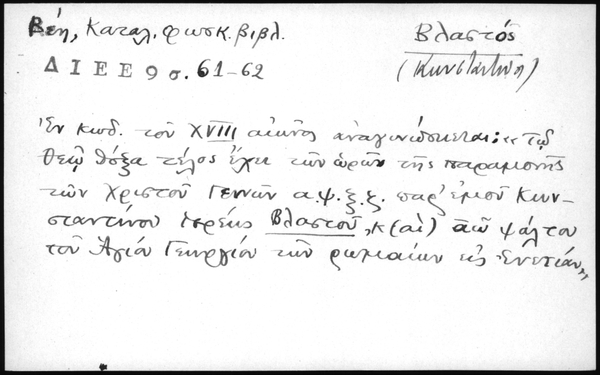 Βέη, Καταλ. φωσκ. βιβλ.
Βλαστός
ΔΙΕΕ 9 σ. 61-62
(Κωνσταντῖνος)
Ἐν κωδ. τοῦ XVIII αἰῶνος ἀναγινώσκεται: «τῷ
θεῷ δόξα τέλος ἔχει τῶν ὡρῶν τῆς παραμονῆς
τῶν Χριστοῦ Γεννῶν α.ψ.ξ.ξ. παρ' ἐμοῦ Κων-
σταντίνου ἱερέως Βλαστοῦ, κ(αὶ) ψάλτου
τοῦ Ἁγίου Γεωργίου τῶν ρωμαίων εἰς Ἐνετίαν»